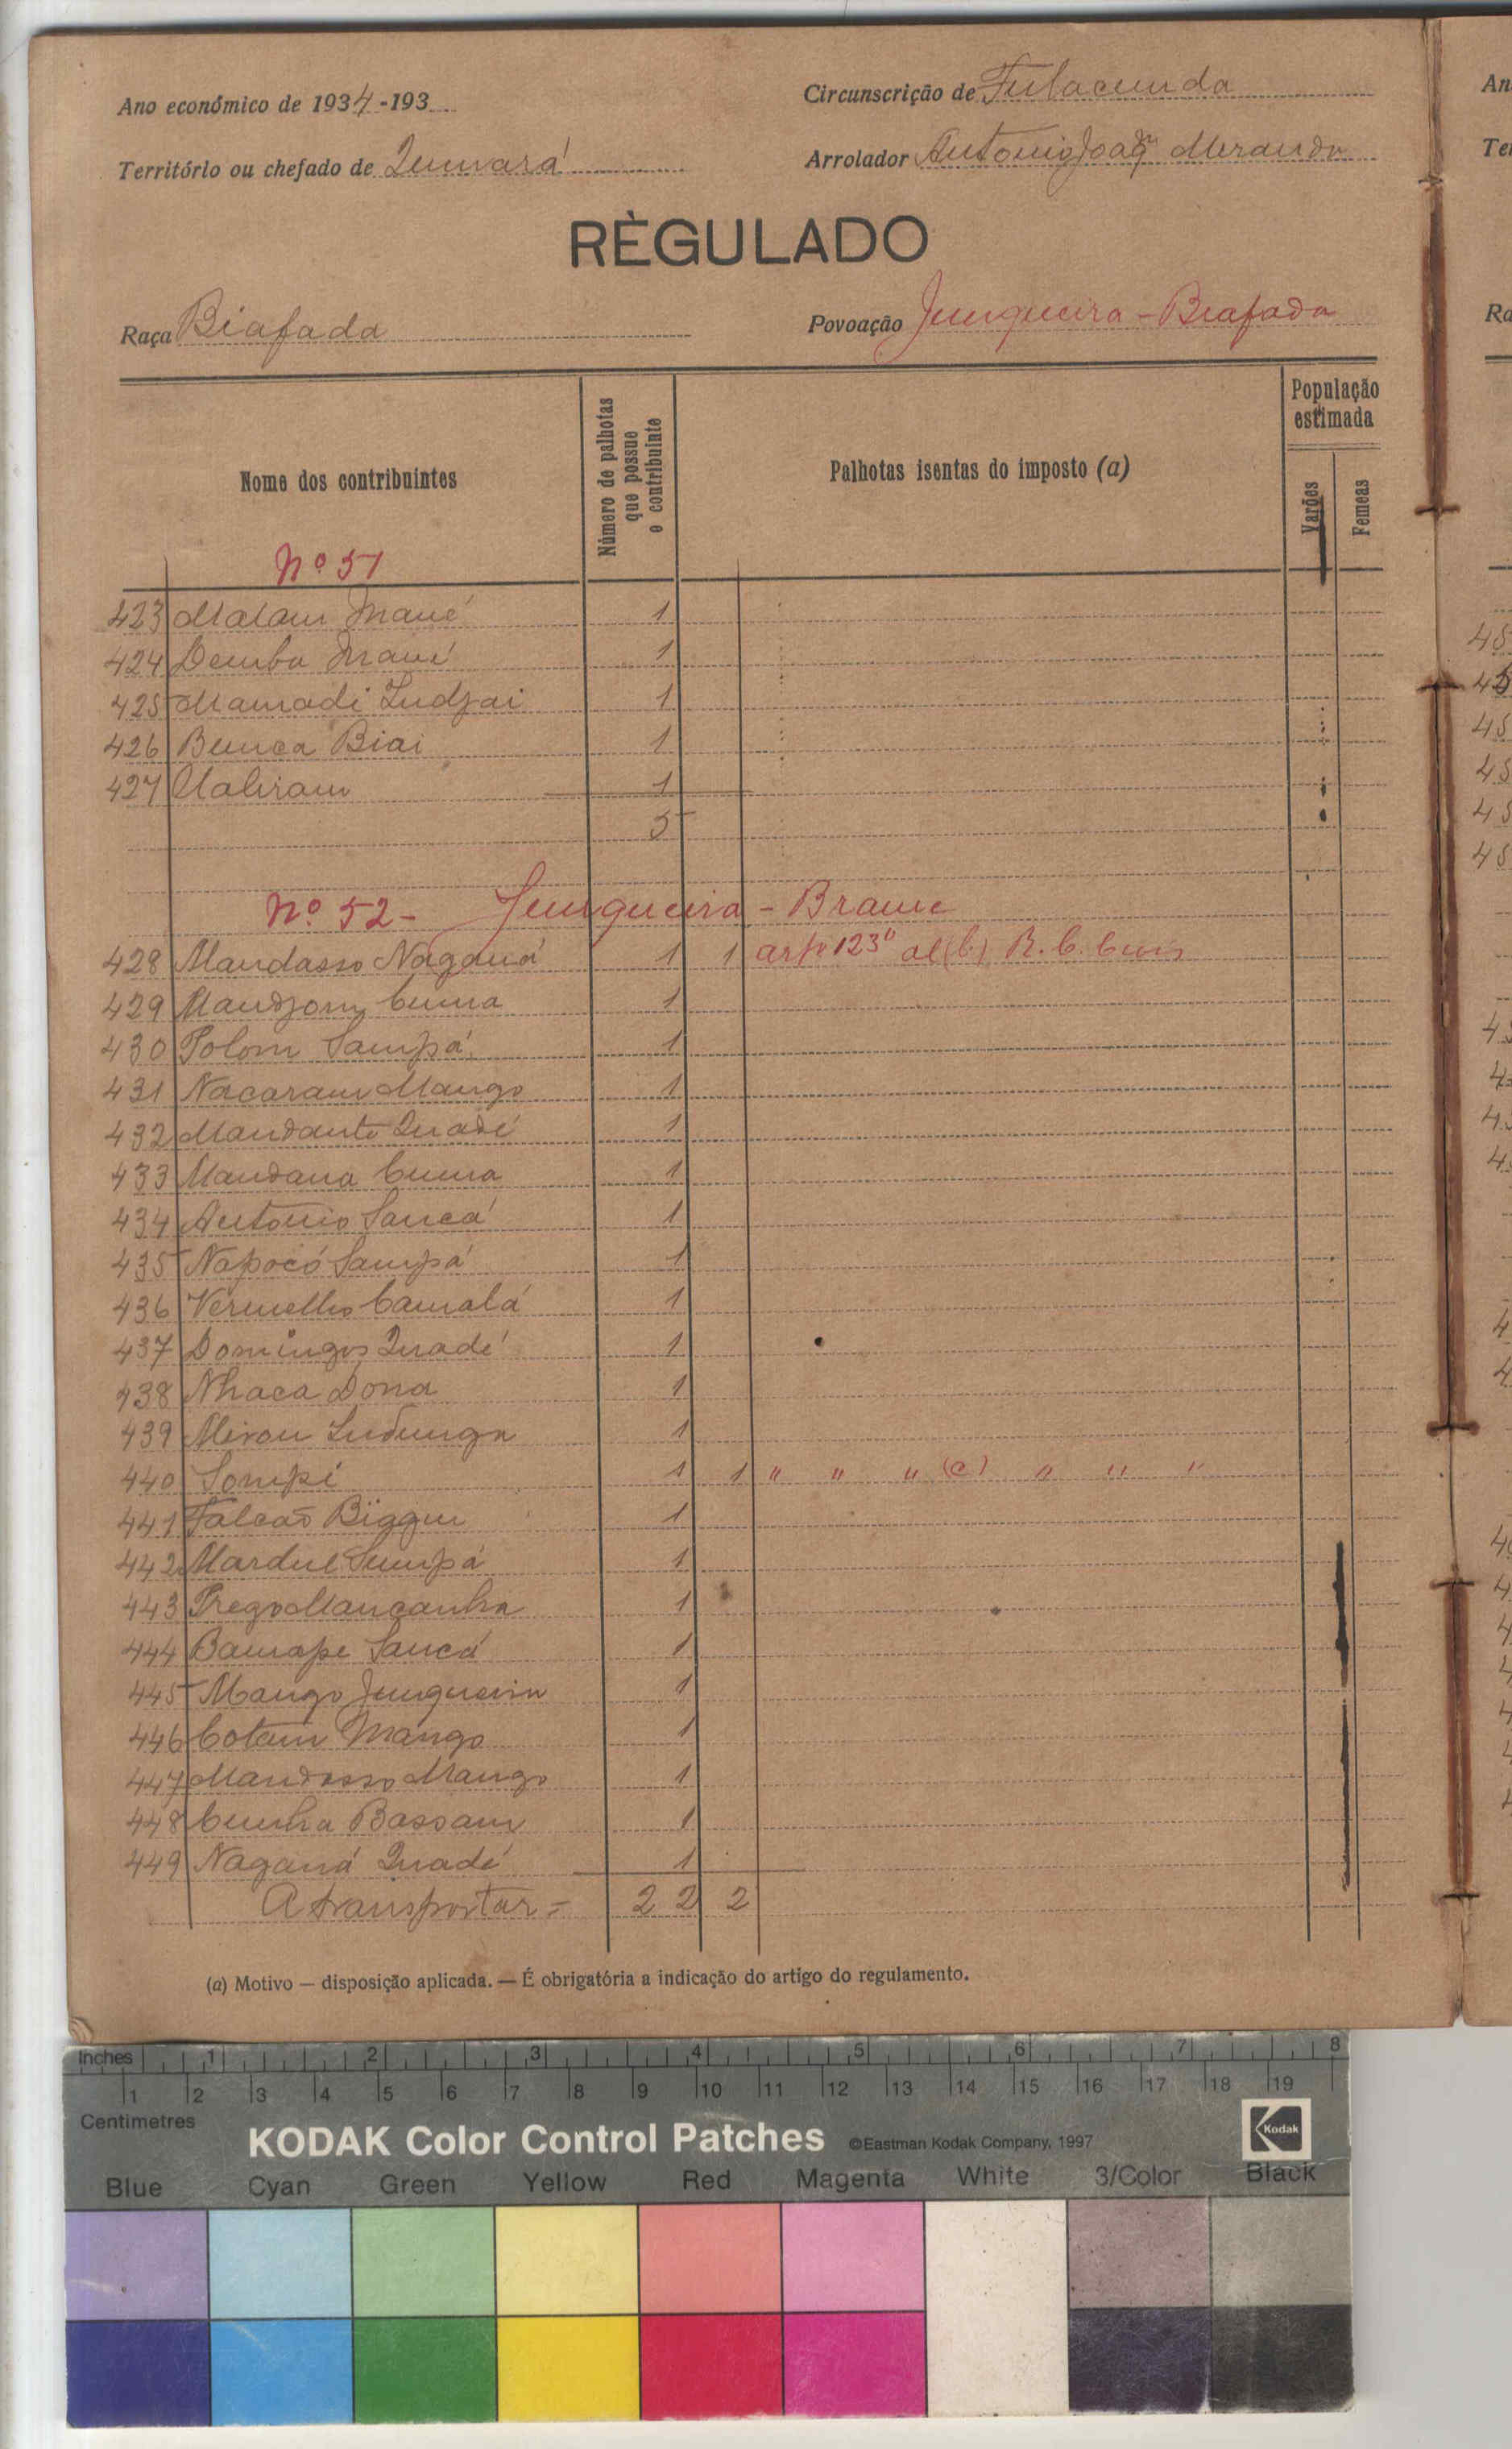 Ano económico de 1934-193
Circunscrição de Fulacunda
Território ou chefado de Quinará
Arrolador António João Miranda
RÈGULADO
Raça Biafada
Povoação Junqueira - Biafada
Nome dos contribuintes
Número de palhotas que possue o contribuinte
Palhotas isentas do imposto (a)
População estimada
Varões
Femeas
Nº 51
423 Malam Mané 1
424 Demba Mané 1
425 Mamadi Indjai 1
426 Bunca Biai 1
427 1
5
Nº 52 - Junqueira - Brame
428 Mandasso Naganá 1 1 artº 123º al(b)
429 Mandjom Cuma 1
430 Polom Sampá 1
431 Nacaram Mango 1
432 Mandante Quadé 1
433 Mandana Cuma 1
434 António Sancá 1
435 Napocó Sampá 1
436 Vermelho Camalá 1
437 Domingos Quadé 1
438 Nhaca Dona 1
439 Indunga 1
440 Sompi 1 1 " " " (c) " " "
441 Falcão 1
442 1
443 Prego Mancanha 1
444 Bamape Sancá 1
445 Mango Junqueira 1
446 Cotam Mango 1
447 Mandosso Mango 1
448 Cunha Bassam 1
449 Naganá Quadé 1
A transportar = 22 2
(a) Motivo — disposição aplicada. — É obrigatória a indicação do artigo do regulamento.
Inches 1 2 3 4 5 6 7 8
1 2 3 4 5 6 7 8 9 10 11 12 13 14 15 16 17 18 19
Centimetres
KODAK Color Control Patches ©Eastman Kodak Company, 1997 Kodak
Blue Cyan Green Yellow Red Magenta White 3/Color Black